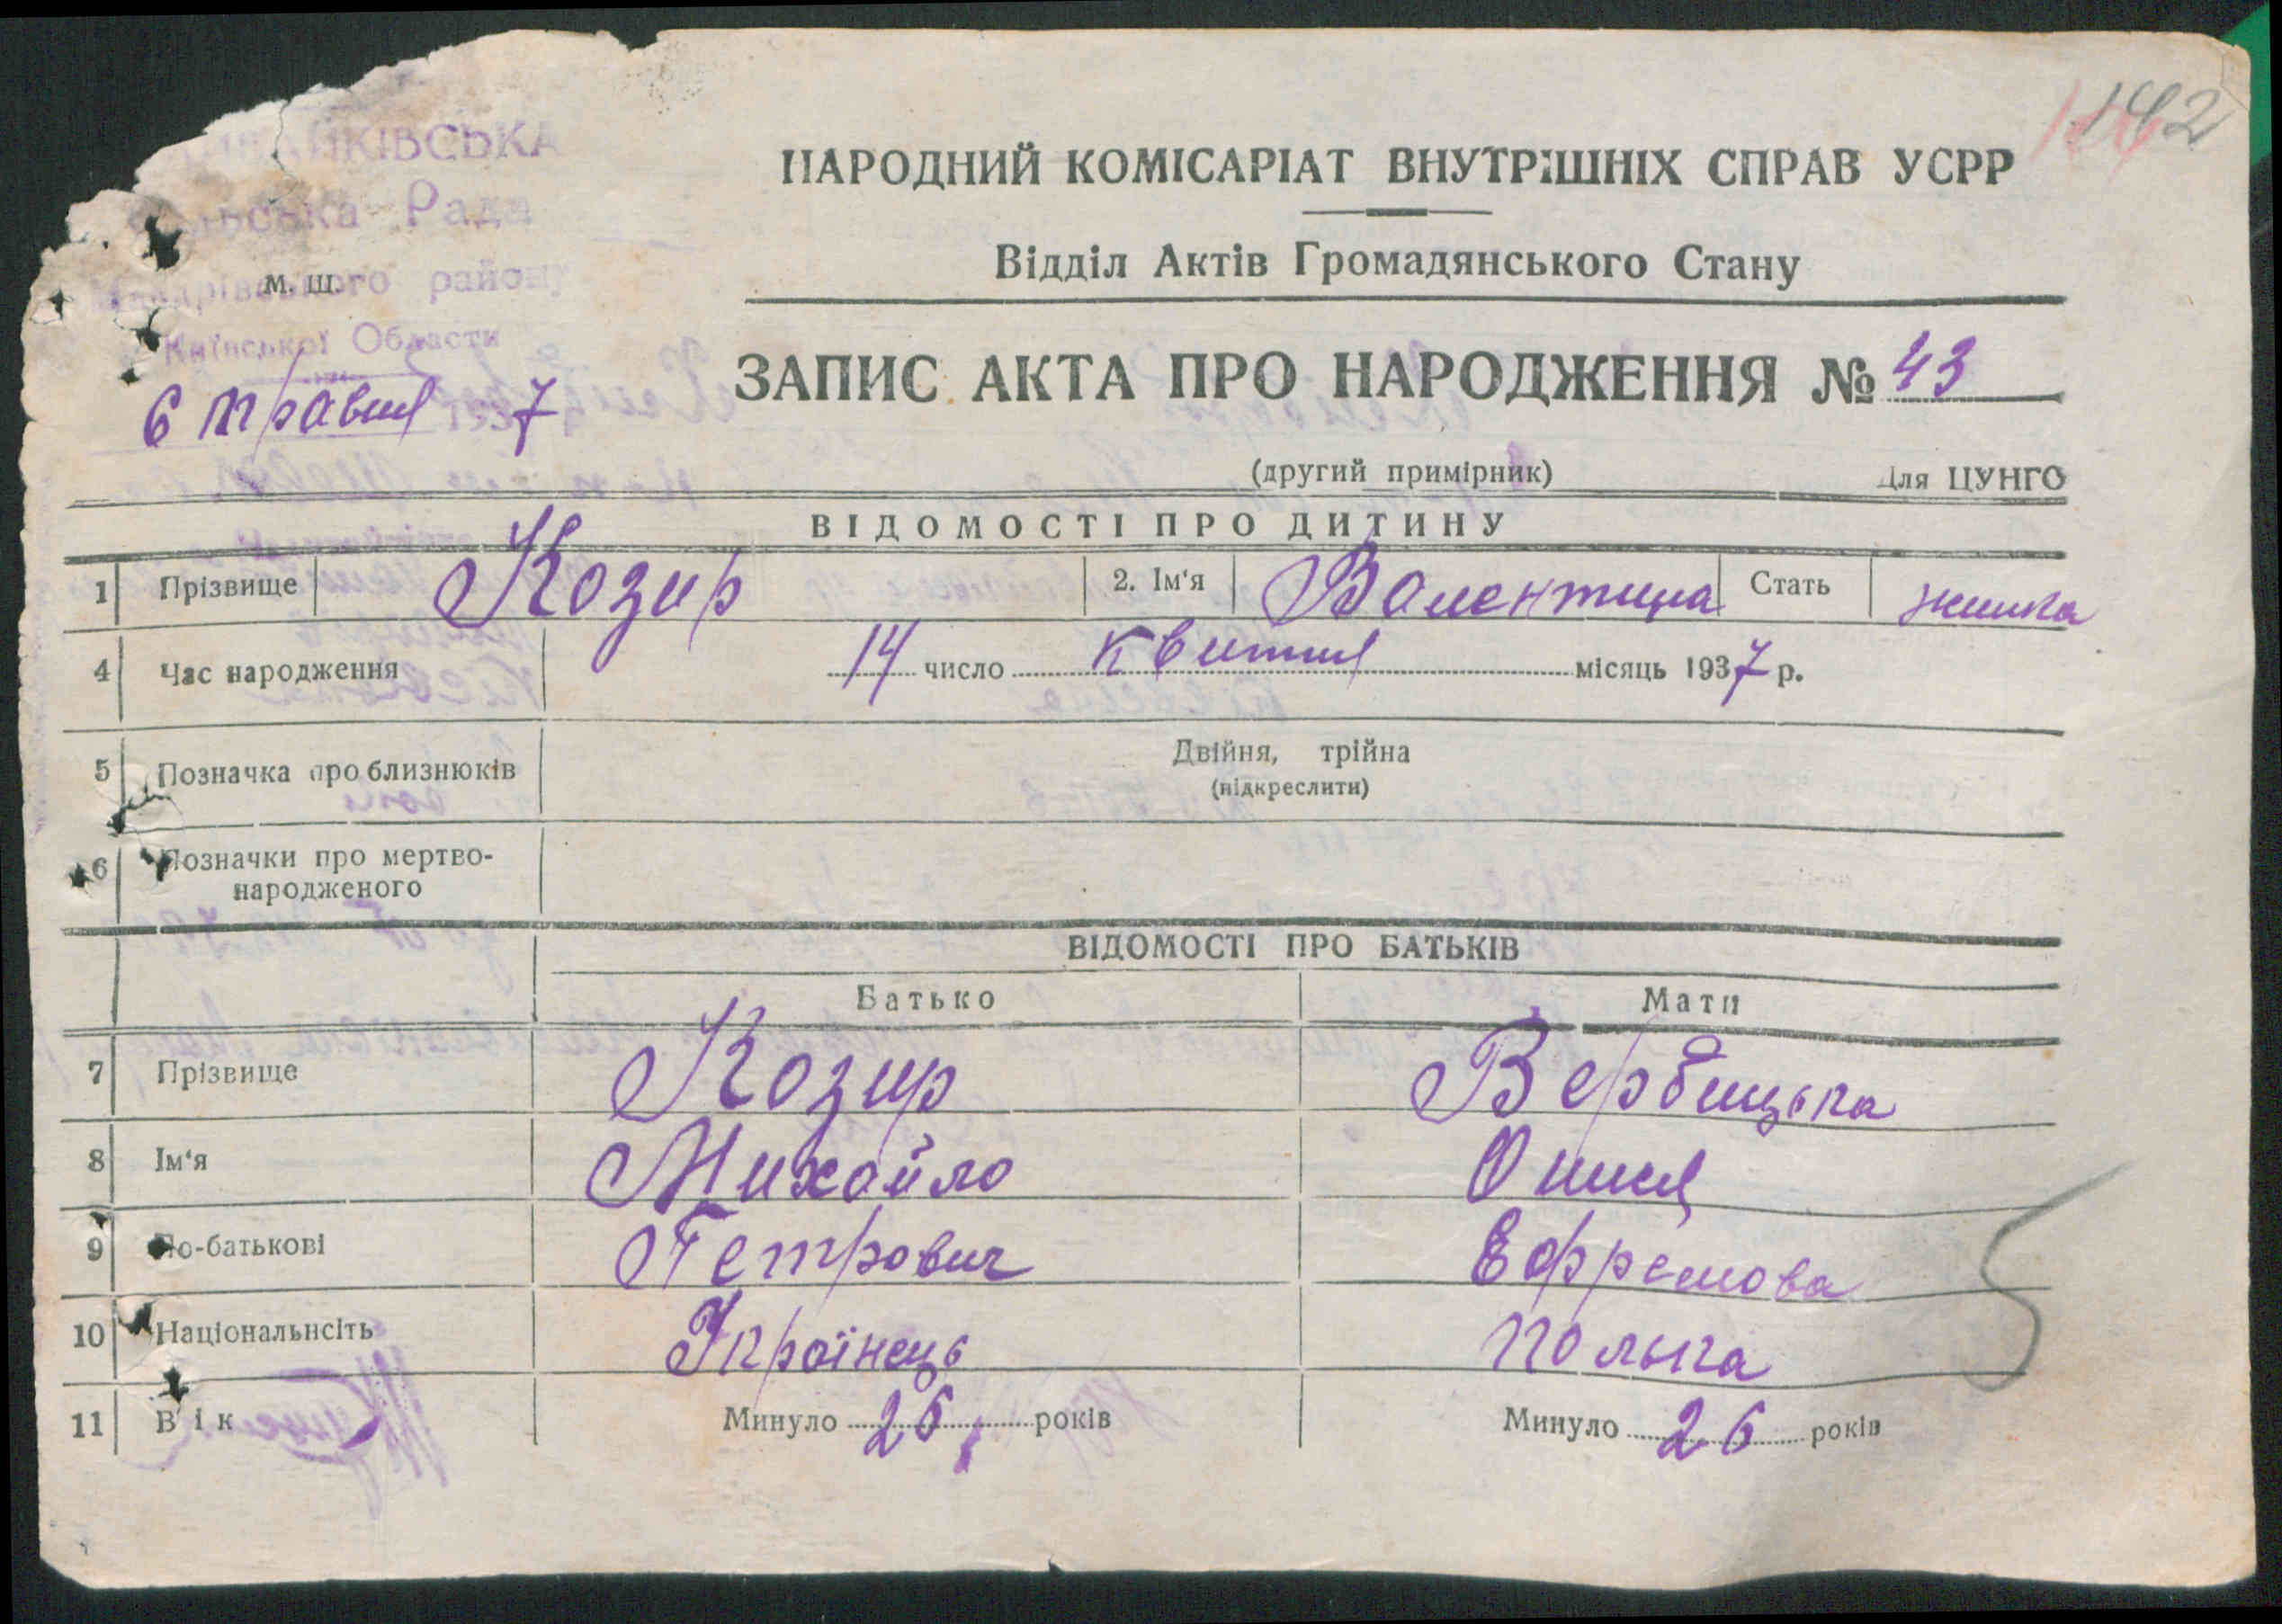 142
НАРОДНИЙ КОМІСАРІАТ ВНУТРІШНІХ СПРАВ УСРР
Рада
Відділ Актів Громадянського Стану
М. Ш.
району
Київської Области
ЗАПИС АКТА ПРО НАРОДЖЕННЯ № 43
6 травня 1937
(другий примірник) Для ЦУНГО
ВІДОМОСТІ ПРО ДИТИНУ
1 Прізвище Козир 2. Ім‘я Валентина Стать жинка
4 Час народження 14 число квитня місяць 1937 р.
5 Позначка про близнюків Двійня, трійна
(підкреслити)
6 Позначки про мертво-
народженого
ВІДОМОСТІ ПРО БАТЬКІВ
Батько Мати
7 Прізвище Козир Вербицька
8 Ім‘я Михайло Онися
9 По-батькові Петрович Ефремова
10 Національнсіть Українець полька
11 Вік Минуло 26 років Минуло 26 років